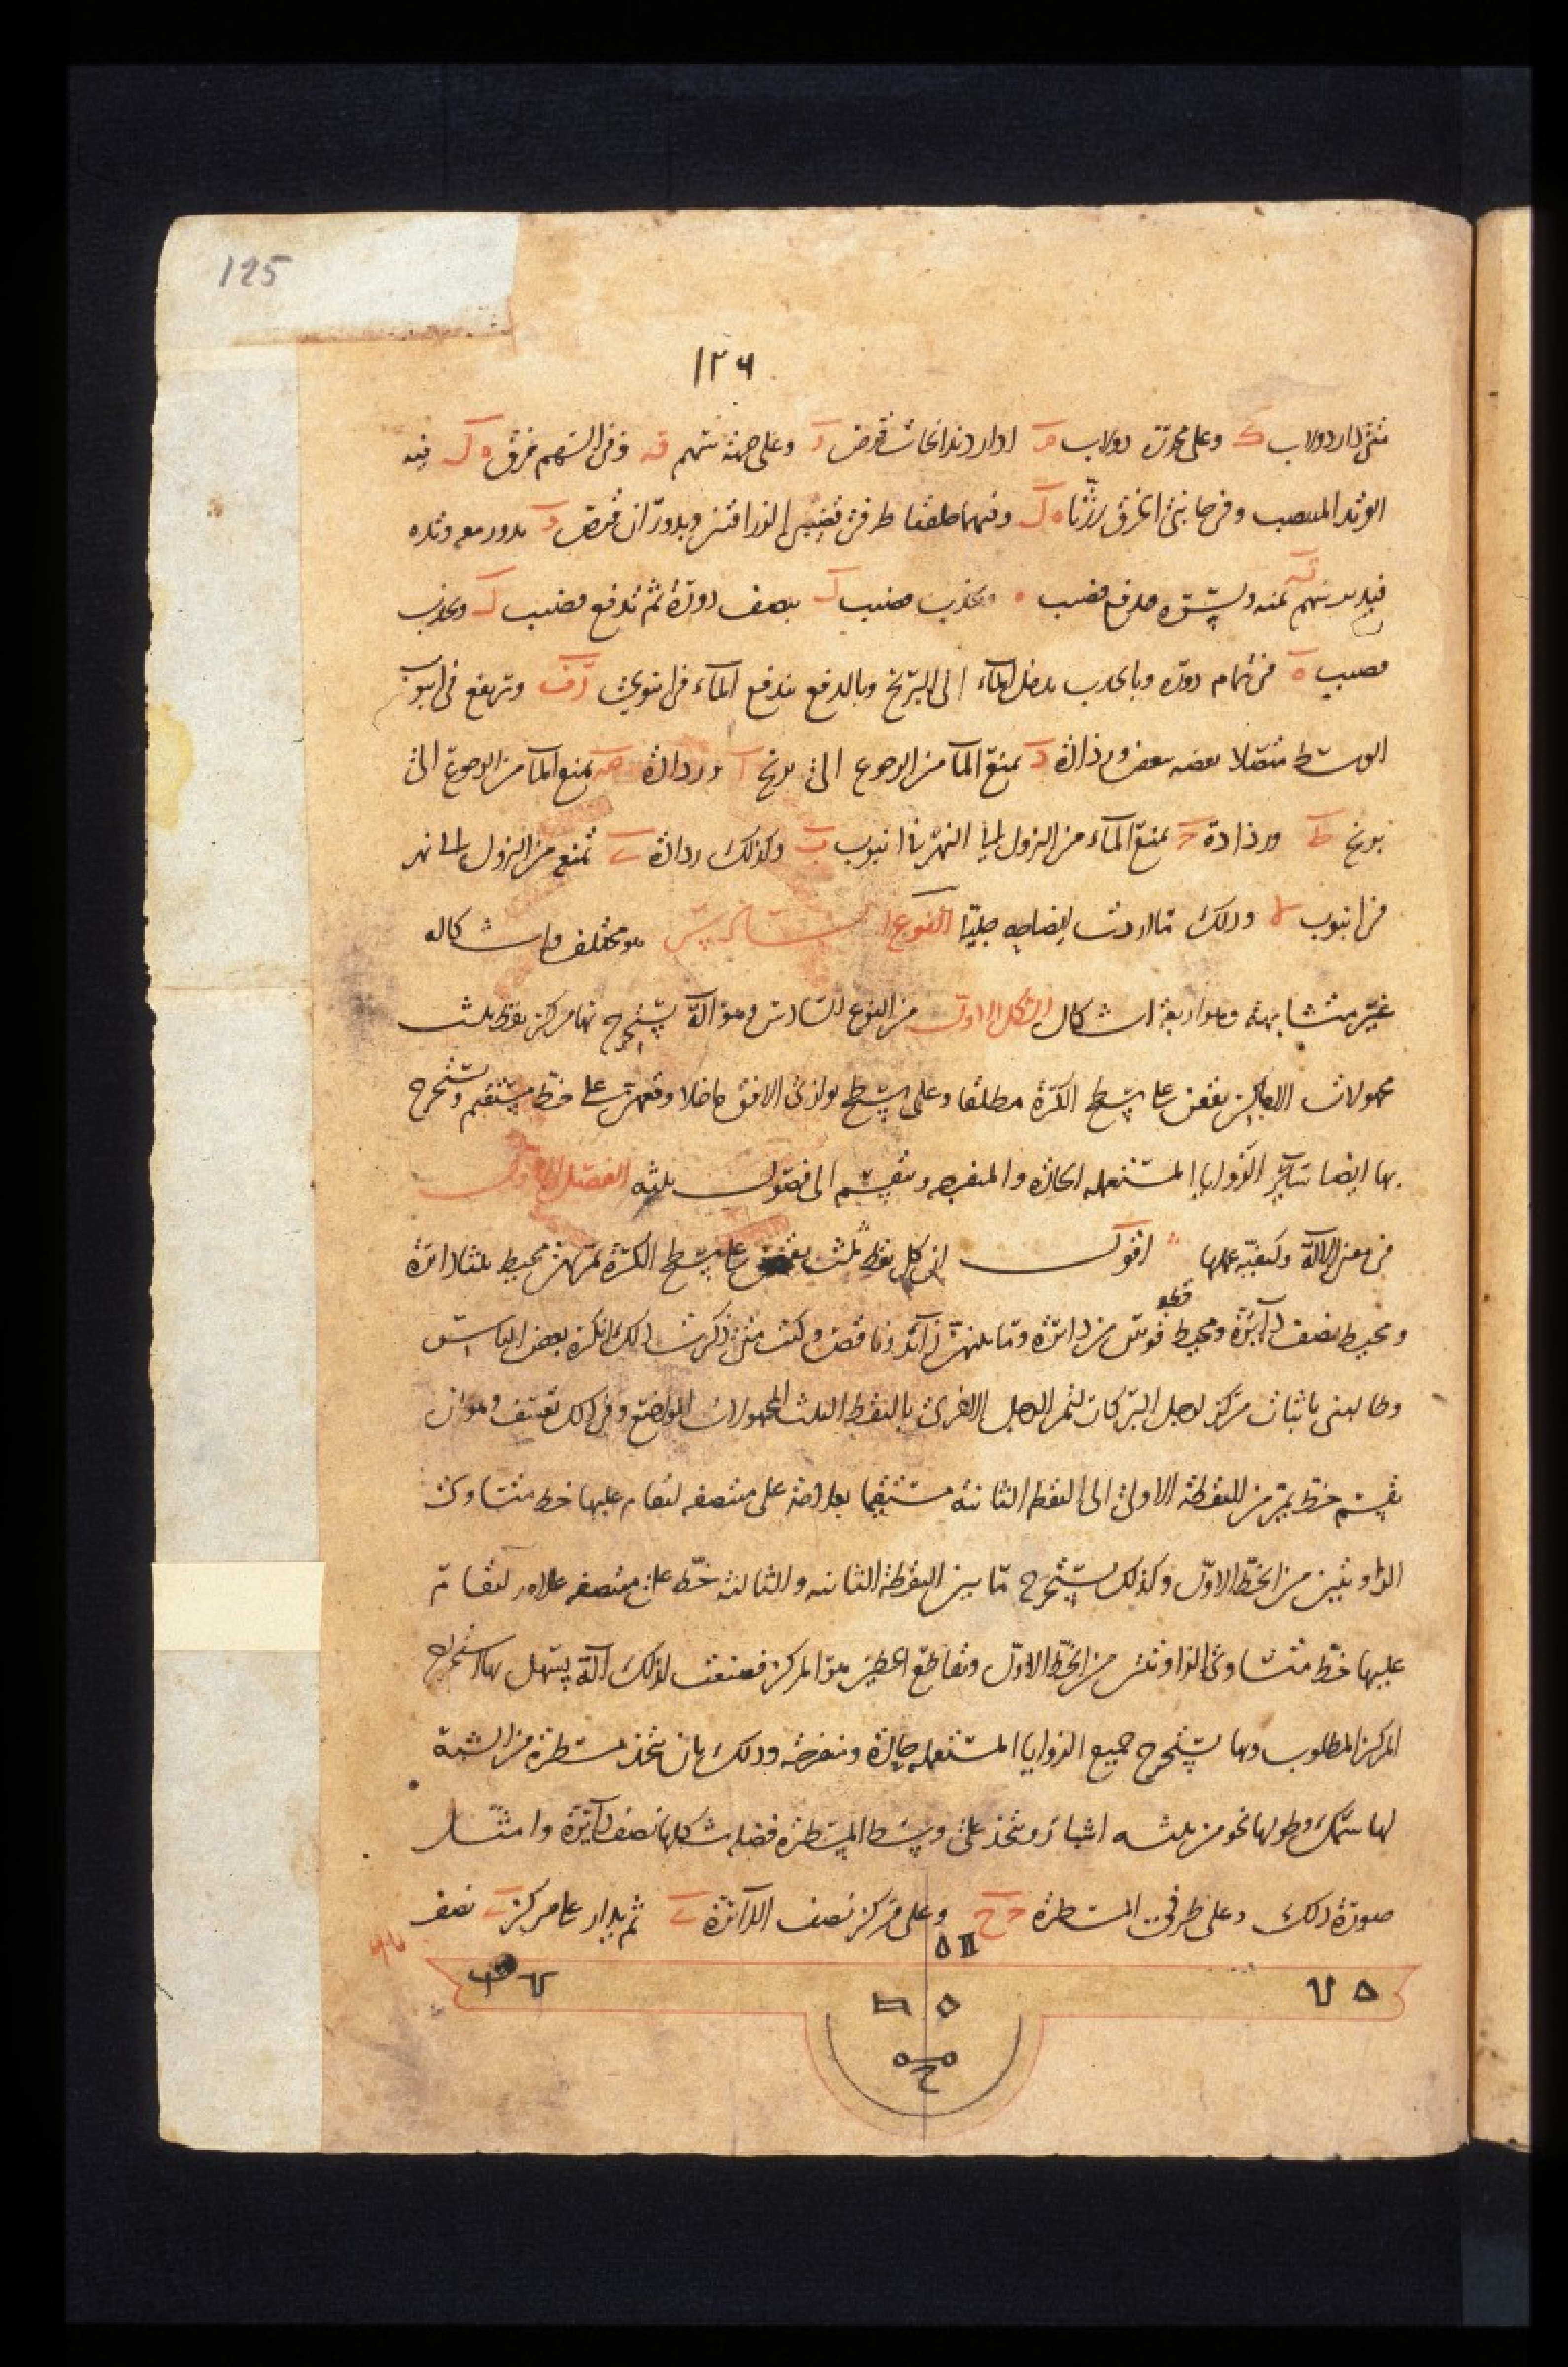 125
١٢٦
متى دار دولاب ك وعلى محوره دولاب م ادار دندانجات قرص د وعلى جهته سهم قه وفى السهم خرق ه ل فيه
الوتد المنصب وفى جانبى الخرق رزتا ه ل وفيهما حلقتا طرفى قضيبى الزراقتين وبدوران قرص د يدور معه وتده
فيدير سهم قه يمنه ويسره فيدفع قضيب ه ويجذب قضيب ل بنصف دورة ثم تدفع قضيب ل ويجذب
قضيب ه فى تمام دوره وبالجذب يدخل الماء الى البربخ وبالدفع يندفع الماء فى انبوبى ر ف وترتفع فى انبوب
الوسط متصلا بعضه ببعض وردادة د يمنع الما من الرجوع الى بربخ ا وردادة ه يمنع الما من الرجوع الى
بربخ ط وردادة ح يمنع الماء من النزول الى النهر فى انبوب ب وكذلك ردادة ى تمنع من النزول الى نهر
فى انبوب لا وذلك ما اردت ايضاحه جليا النوع السادس هو مختلف واشكاله
غير متشابهة وهو اربعة اشكال الشكل الاول من النوع السادس وهو آلة يستخرج بها مركز نقط ثلث
مجهولات الاماكن يقعن على سطح الكرة مطلقا وعلى سطح يوازى الافق ماخلا وقعهن على خط مستقيم ويستخرج
بها ايضا ساير الزوايا المستعمله الحادة والمنفرجه وينقسم الى فصول ثلثه الفصل الاول
فى معنى الآلة وكيفية عملها اقول ان كل نقط ثلث يقعن على سطح الكرة يمر بهن محيط ثلثا دائرة
ومحيط نصف دائرة ومحيط نحو قوس من دائرة وما بينهن زائد وناقص وكنت متى ذكرت ذلك انكره بعض الناس
وطالبنى باثبات مركز لرجل البركار ليمر الرجل الاخرى بالنقط الثلث المجهولات المواضع وفى ذلك تعسف وهو ان
يقسم خط يمر من النقطة الاولى الى النقطة الثانية مستقيما بعلامة على منتصفه ليقام عليها خط متساوى
الزاويتين من الخط الاول وكذلك يستخرج ما بين النقطة الثانيه والثالثة خط على منتصفه علامه ليقام
عليها خط متساوى الزاويتين من الخط الاول وتقاطع الخطين هو المركز فصنعت لذلك آلة يسهل بها استخراج
المركز المطلوب وبها يستخرج جميع الزوايا المستعمله حادة ومنفرجه وذلك بان يتخذ مسطرة من الشبه
لها سمك وطولها نحو من ثلثه اشبار ويتخذ على وسط المسطرة فضله شكلها نصف دائرة وامثل
صورة ذلك وعلى طرفى المسطرة ح ح وعلى مركز نصف الدائرة ى ثم يدار على مركز ى نصف